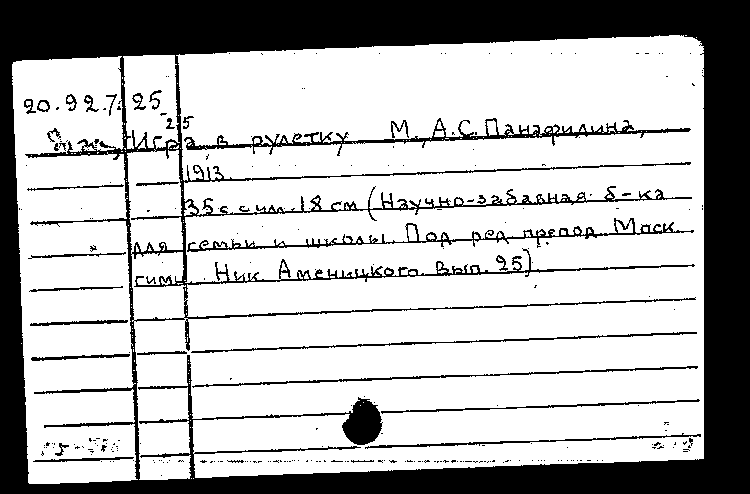 20.92.7.25
25
Игра в рулетку М., А.С. Панафидина,
1913.
35 с. с ил. 18 см (Научно-забавная б-ка
для семьи и школы. Под ред. препод. Моск.
гимн. Ник. Аменицкого. Вып. 25)